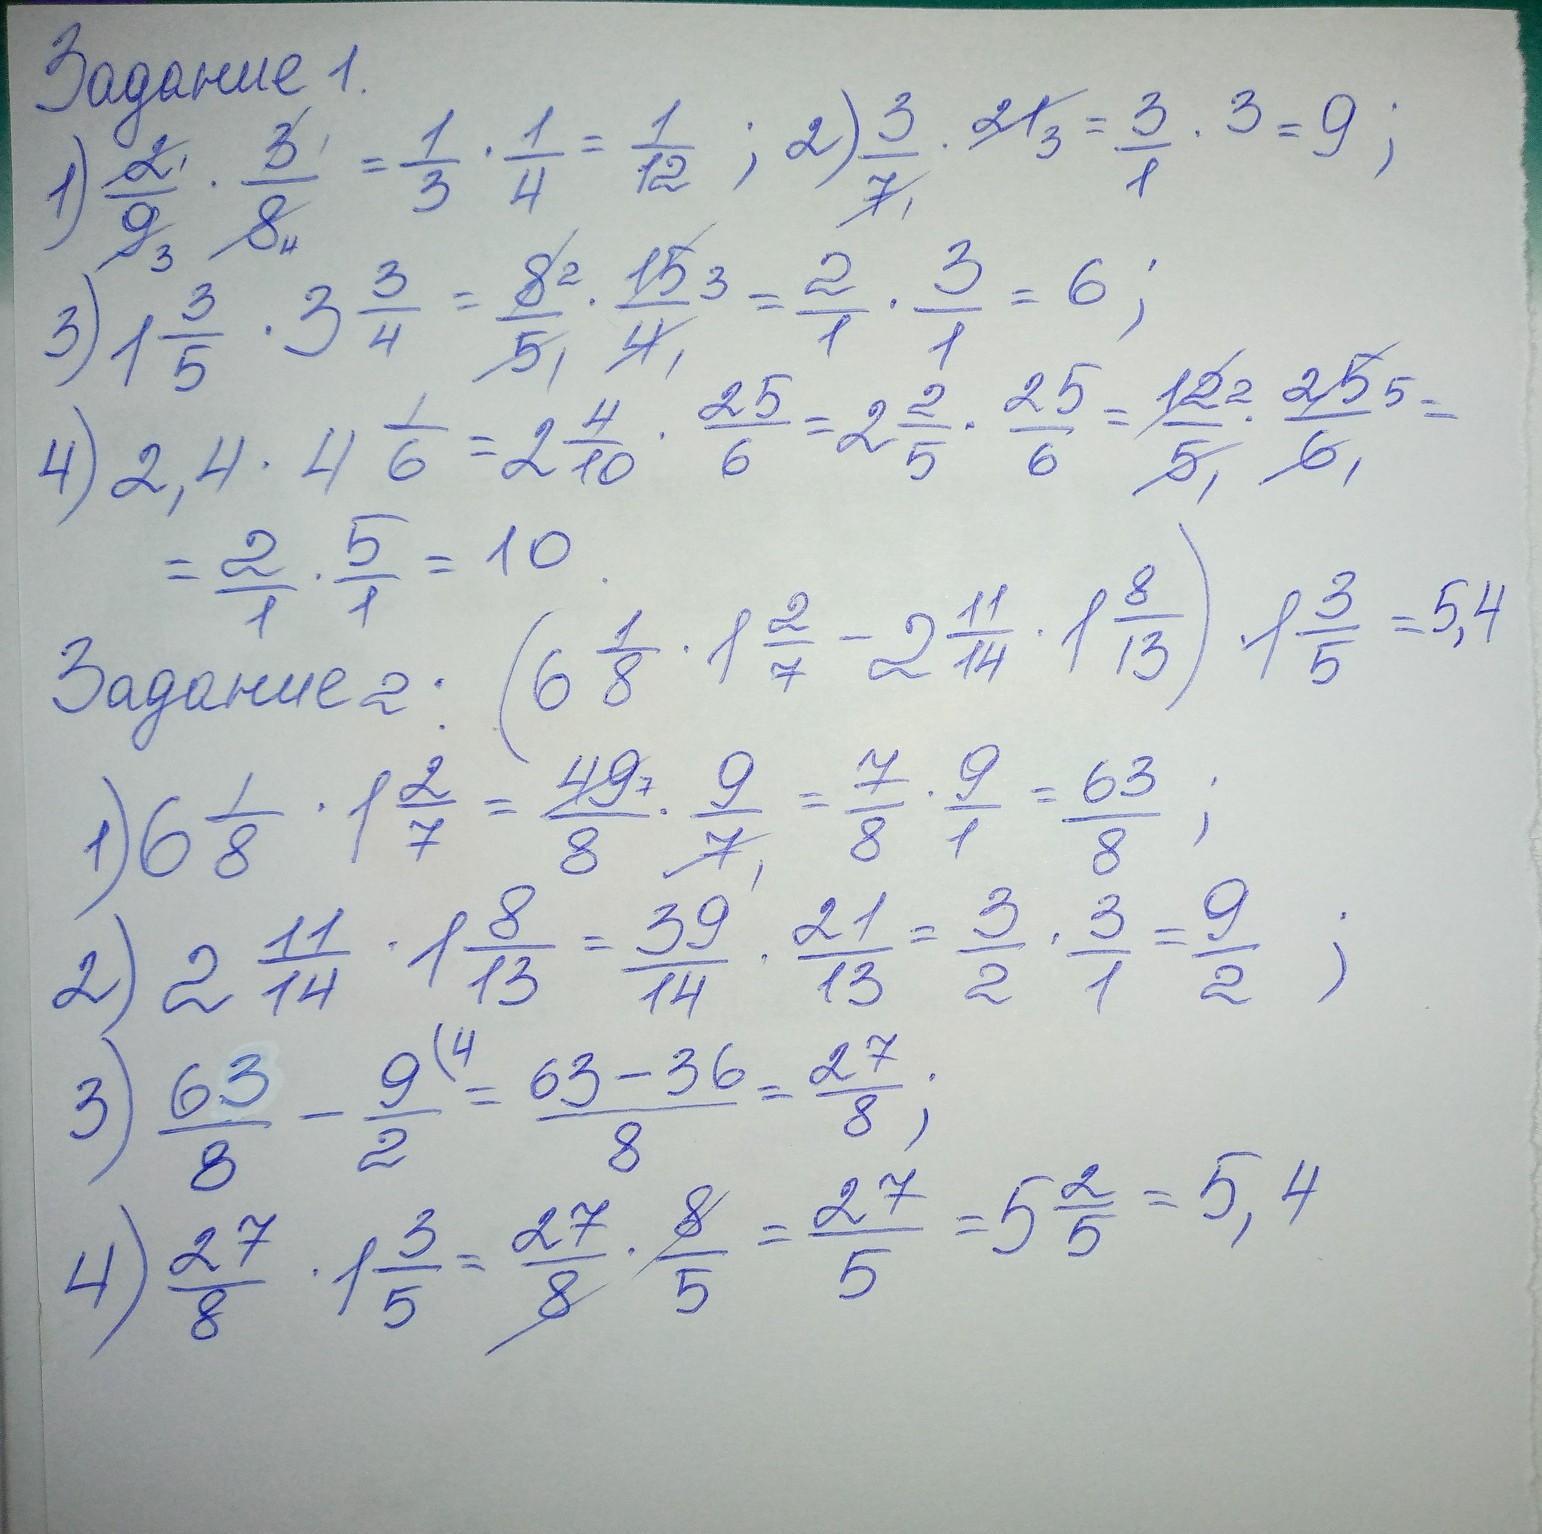 Задание 1.
1) 2/9 · 3/8 = 1/3 · 1/4 = 1/12 ; 2) 3/7 · 21 3 = 3/1 · 3 = 9 ;
3) 1 3/5 · 3 3/4 = 8 2/5 1 · 15 3/4 1 = 2/1 · 3/1 = 6 ;
4) 2,4 · 4 1/6 = 2 4/10 · 25/6 = 2 2/5 · 25/6 = 12 2/5 1 · 25 5/6 1 =
= 2/1 · 5/1 = 10 .
Задание 2: (6 1/8 · 1 2/7 − 2 11/14 · 1 8/13) · 1 3/5 = 5,4
1) 6 1/8 · 1 2/7 = 49 7/8 · 9/7 1 = 7/8 · 9/1 = 63/8 ;
2) 2 11/14 · 1 8/13 = 39/14 · 21/13 = 3/2 · 3/1 = 9/2 ;
3) 63/8 − 9/2 (4 = 63 − 36/8 = 27/8 ;
4) 27/8 · 1 3/5 = 27/8 · 8/5 = 27/5 = 5 2/5 = 5,4